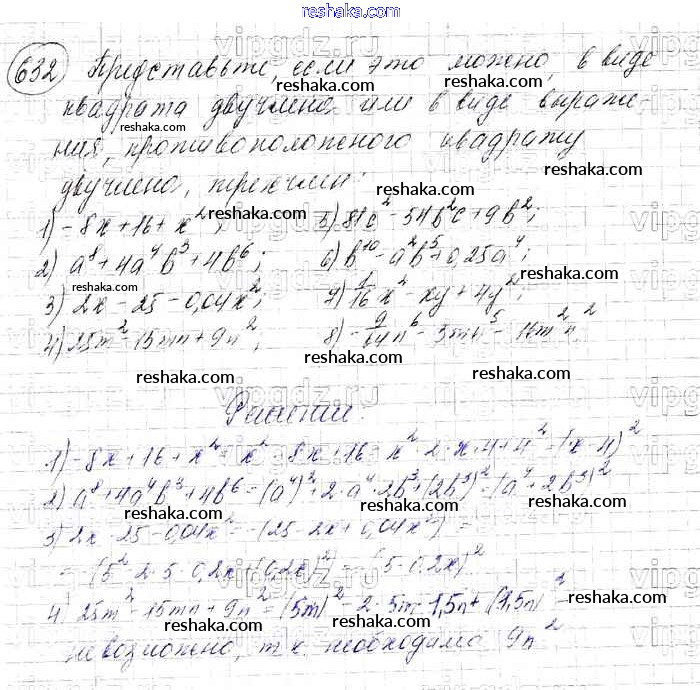 reshaka.com
632 Представьте, если это можно, в виде
квадрата двучлена или в виде выраже-
ния, противоположного квадрату
двучлена, трехчлен:
1) -8x+16+x²; 5) 81c²-54b²c+9b²;
2) a⁸+4a⁴b³+4b⁶; 6) b¹⁰-a²b⁵+0,25a⁴;
3) 2x-25-0,04x²; 7) 1/16x²-xy+4y²;
4) 25m²-15mn+9n²; 8) -9/64n⁶-3mn⁵-16m²n²
Решение:
1) -8x+16+x²=x²-8x+16=x²-2·x·4+4²=(x-4)²
2) a⁸+4a⁴b³+4b⁶=(a⁴)²+2·a⁴·2b³+(2b³)²=(a⁴+2b³)²
3) 2x-25-0,04x²=-(25-2x+0,04x²)=
=-(5²-2·5·0,2x+(0,2x)²)=-(5-0,2x)²
4) 25m²-15mn+9n²=(5m)²-2·5m·1,5n+(1,5n)²
невозможно, т.к. необходимо 9n²
reshaka.com